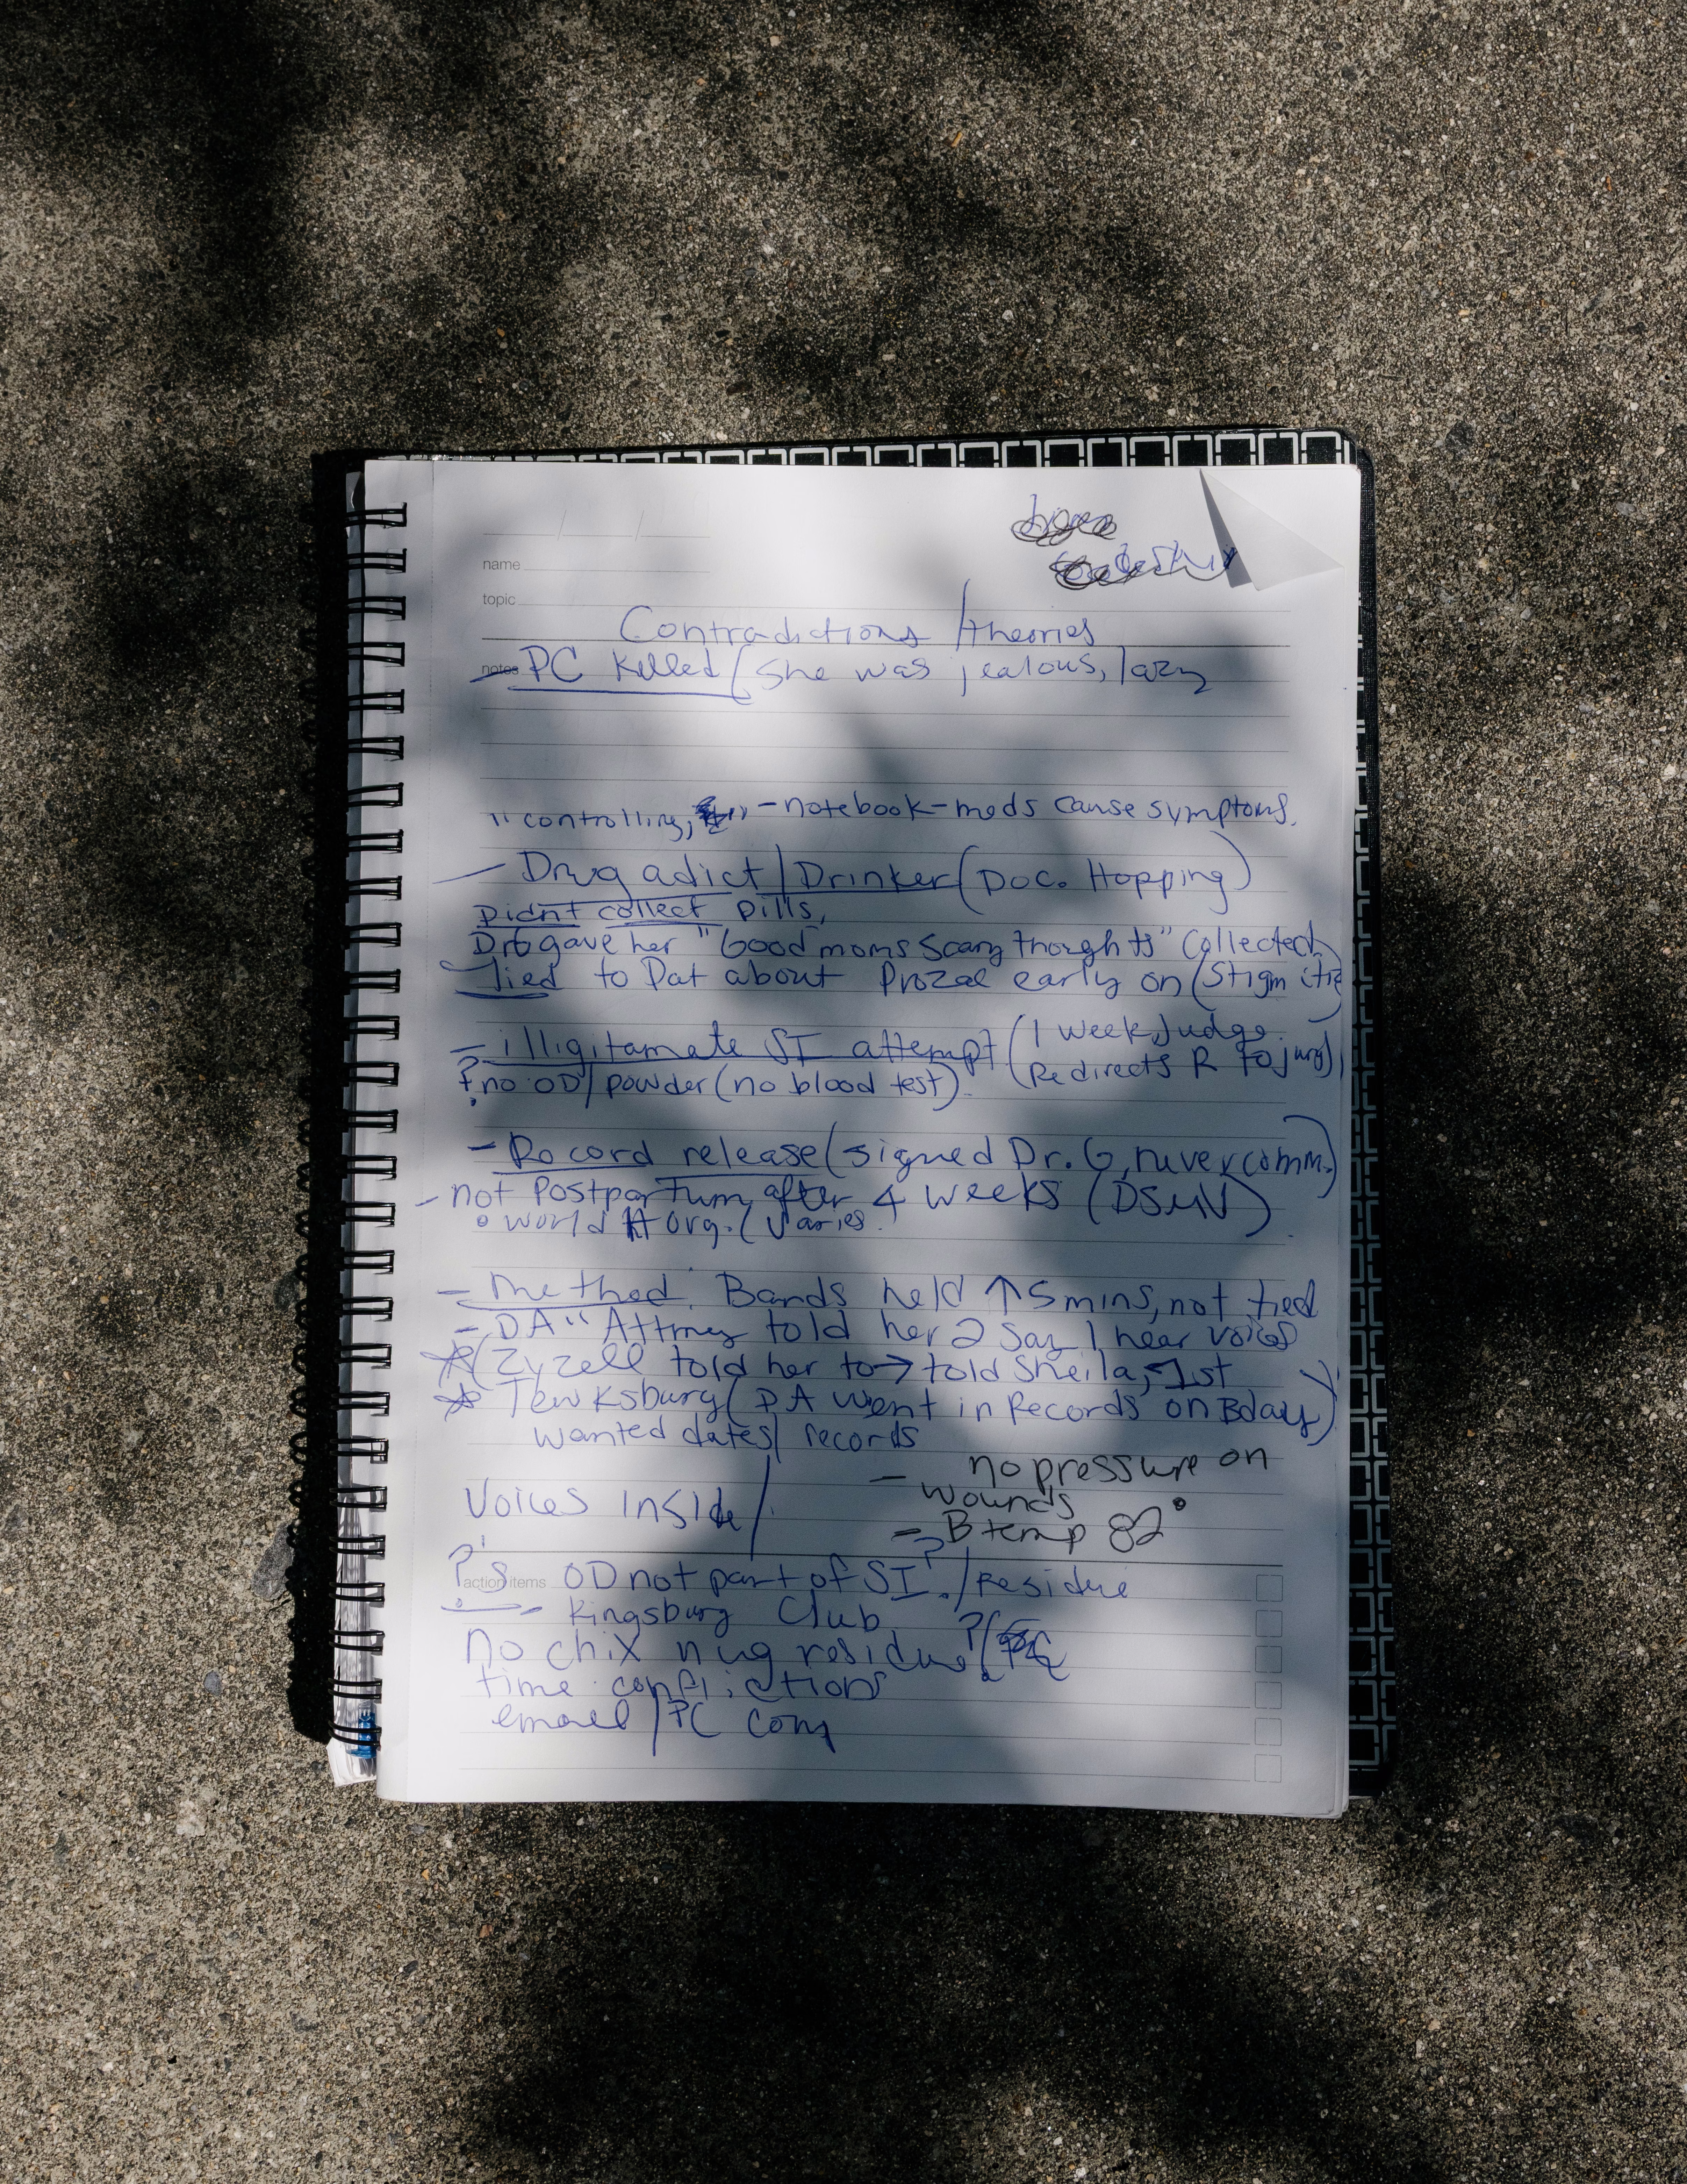 name
topic
Contradictions / theories
notes - PC killed (she was jealous, lazy
"controlling, " - notebook-meds cause symptoms.
- Drug adict / Drinker (Doc. Hopping)
Didn't collect pills,
gave her "Good moms Scary thoughts" Collected)
- lied to Pat about Prozac early on (Stigm
- illigitamate SI attempt (1 week, Judge
Redirects R to jury)
? no OD / powder (no blood test).
- Record release (signed Dr. G, never comm.)
- not Postpartum after 4 weeks (DSMV)
• World H Org. (Varies.
- Method. Bands held ↑ 5 mins, not tied
- DA "Attrney told her 2 Say I hear voices
(Zyzell told her to → told Sheila, 1st
Tewksbury (DA went in Records on Bday)
wanted dates / records
- no pressure on
wounds
Voices inside /
- B temp 82°
?'s action items OD not part of SI? / Residue
- Kingsbury Club
No chix nug residue? (
time
email / PC